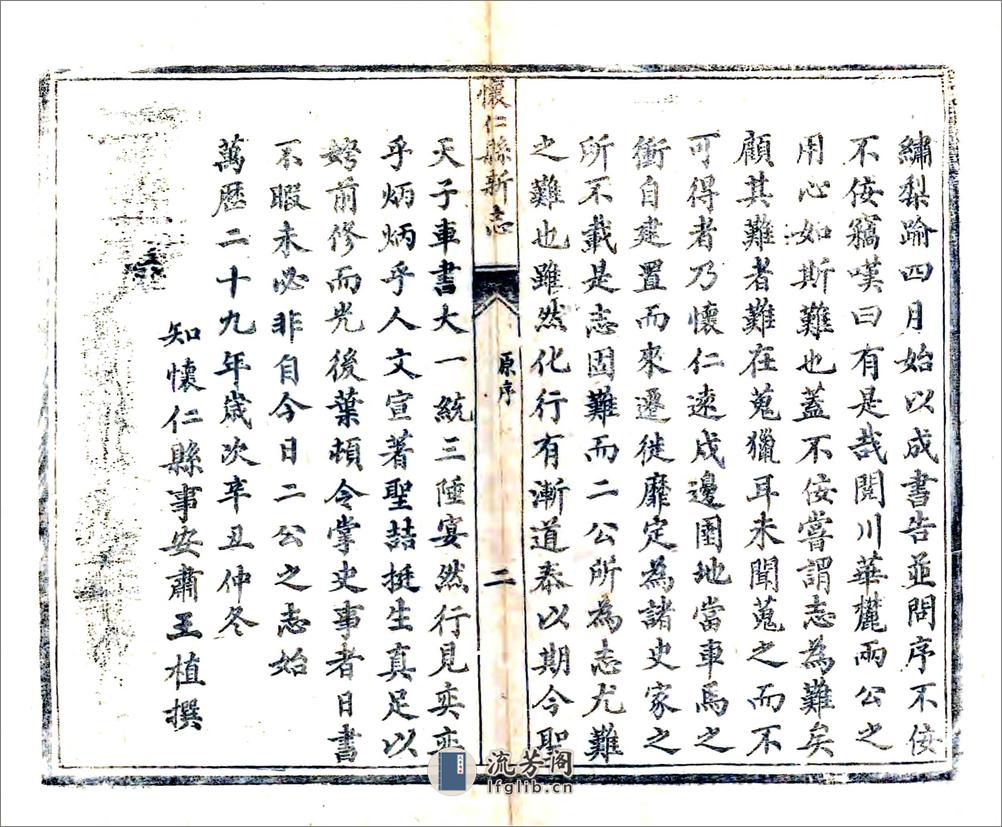 繡梨踰四月始以成書告並問序不佞
不佞竊嘆曰有是哉閱川華麓兩公之
用心如斯難也蓋不佞嘗謂志為難矣
顧其難者難在蒐獵耳未聞蒐之而不
可得者乃懷仁遠戍邊圉地當車馬之
衝自建置而來遷徙靡定為諸史家之
所不載是志固難而二公所為志尤難
之難也雖然化行有漸道泰以期今聖
懷仁縣新志
原序
二
天子車書大一統三陲宴然行見奕奕
乎炳炳乎人文宣著聖喆挺生真足以
姱前修而光後葉頓令掌史事者日書
不暇未必非自今日二公之志始
萬曆二十九年歲次辛丑仲冬
知懷仁縣事安肅王植撰
流芳阁
lfglib.cn